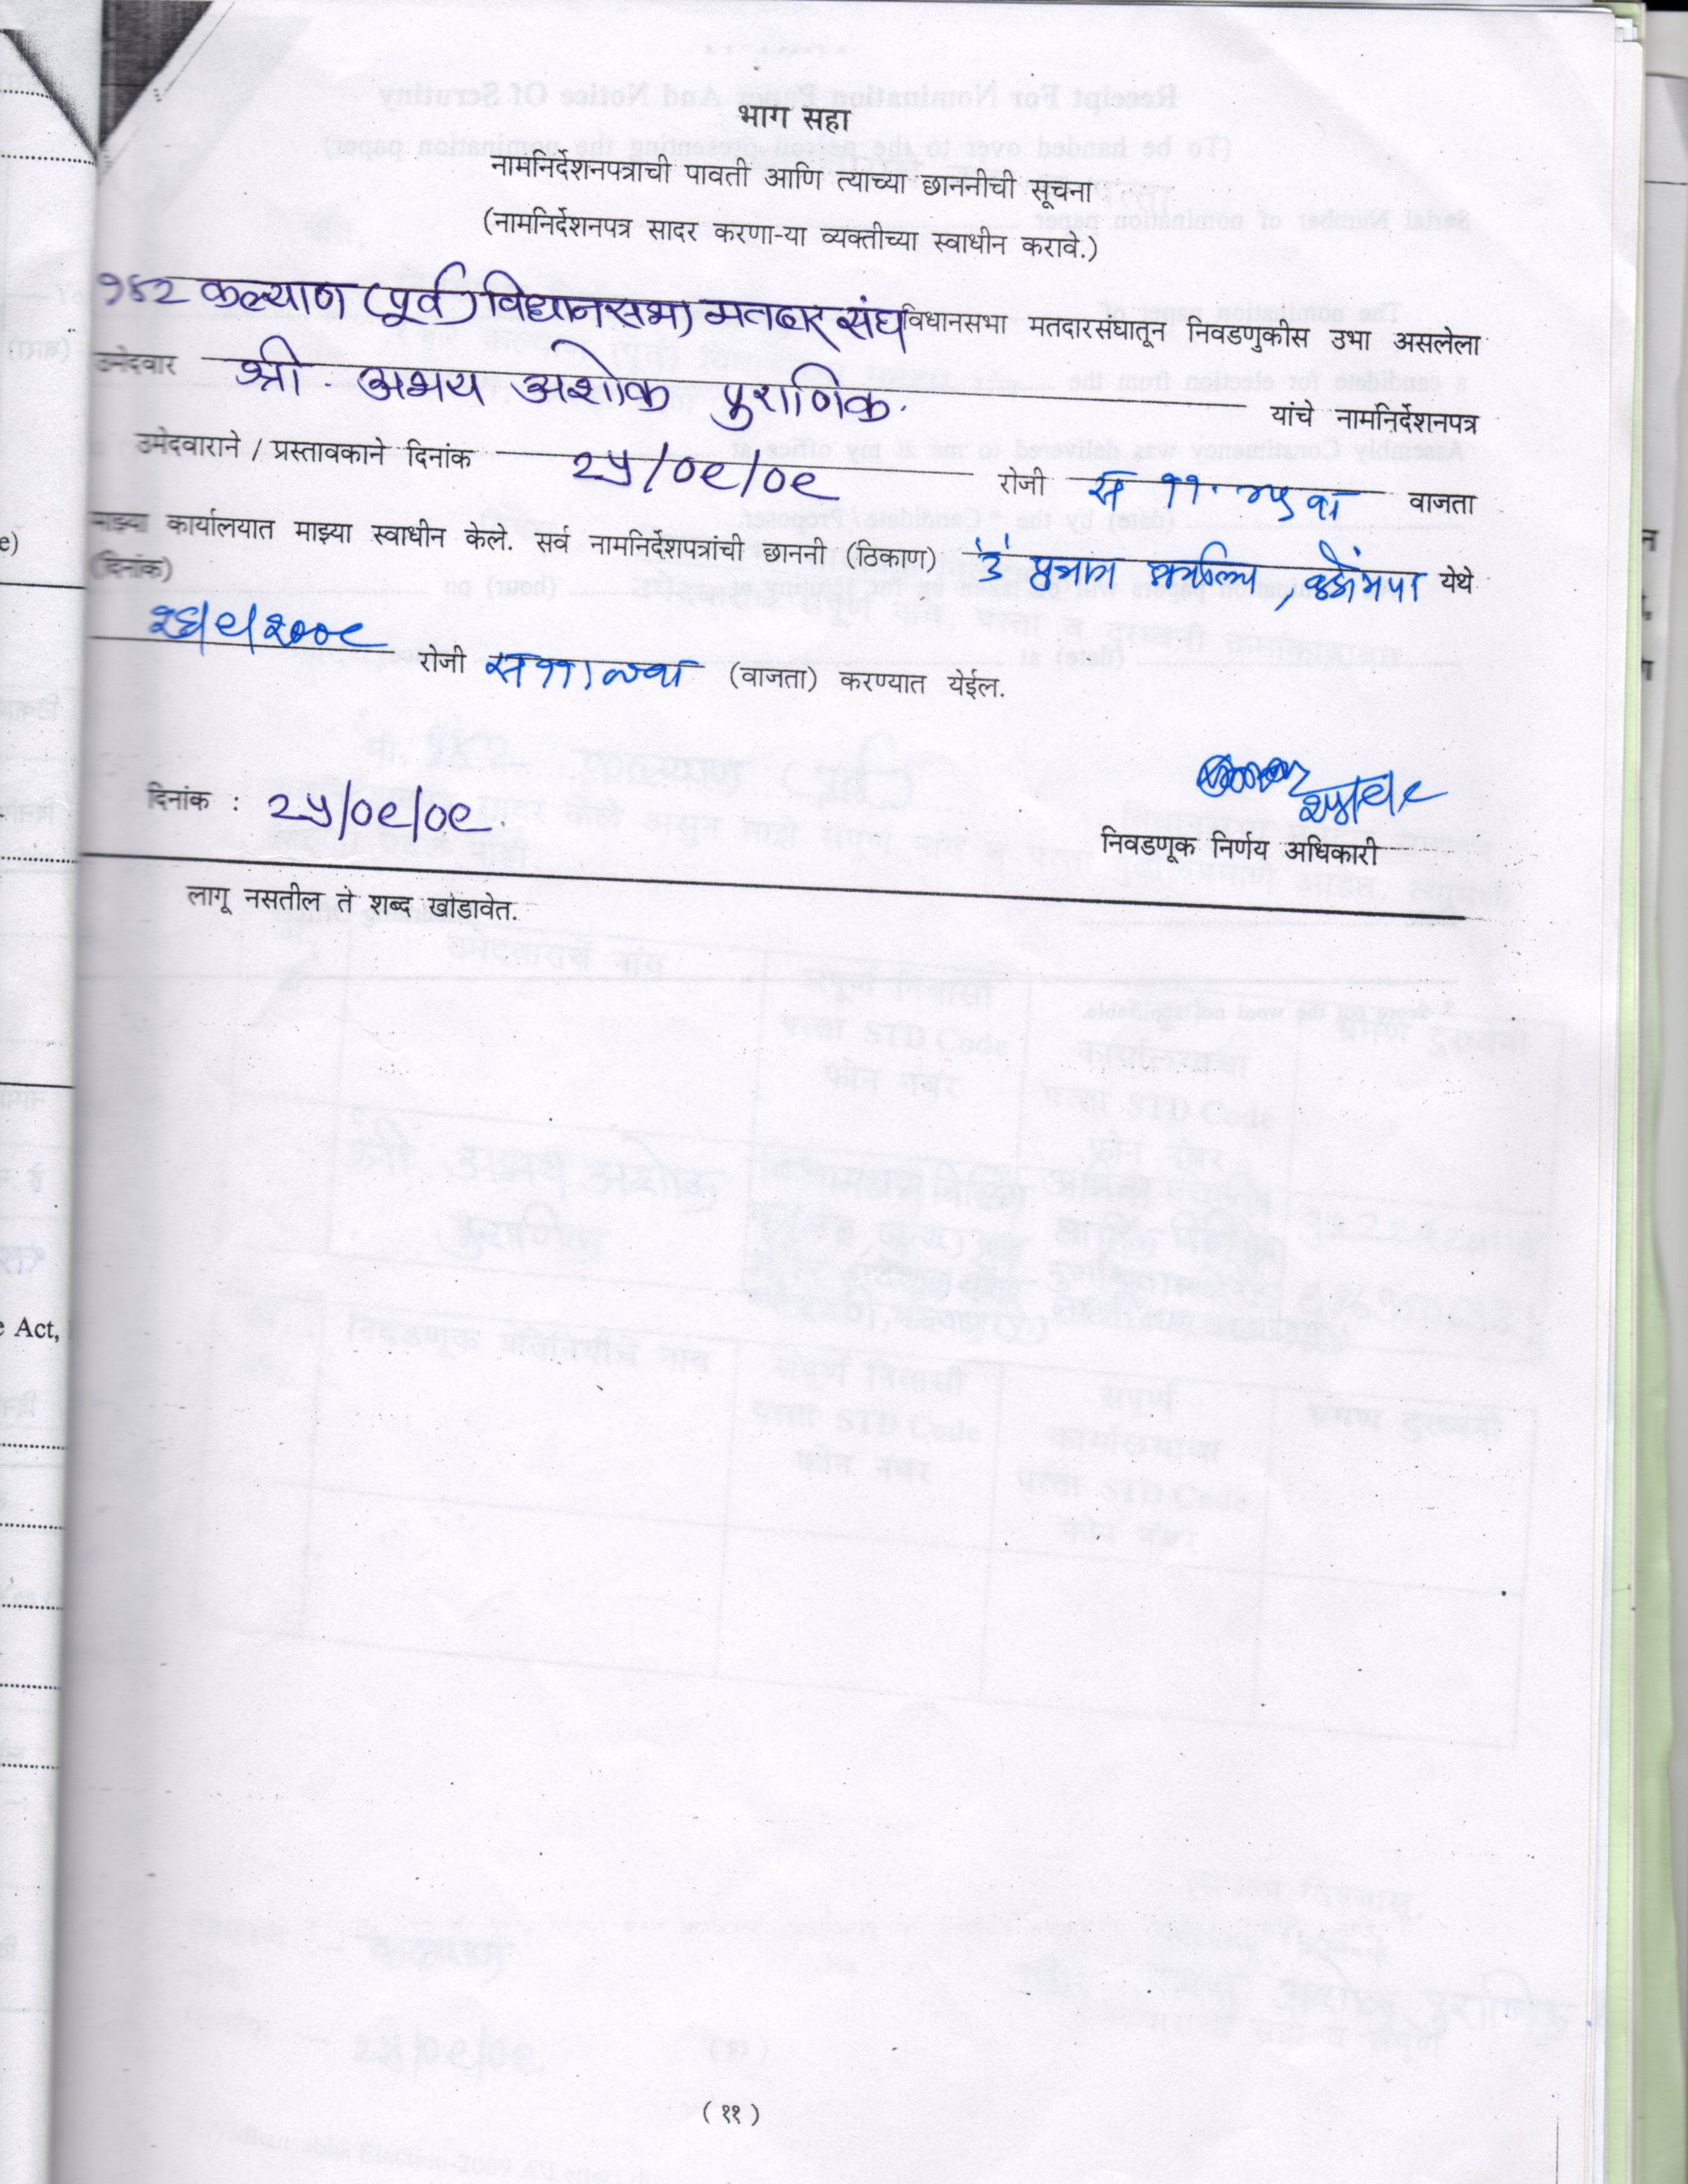 भाग सहा
नामनिर्देशनपत्राची पावती आणि त्याच्या छाननीची सूचना
(नामनिर्देशनपत्र सादर करणा-या व्यक्तीच्या स्वाधीन करावे.)
१४२ कल्याण (पूर्व) विधानसभा मतदार संघ विधानसभा मतदारसंघातून निवडणुकीस उभा असलेला
उमेदवार श्री अभय अशोक पुराणिक. यांचे नामनिर्देशनपत्र
उमेदवाराने / प्रस्तावकाने दिनांक २५/०९/०९ रोजी स ११. वा वाजता
माझ्या कार्यालयात माझ्या स्वाधीन केले. सर्व नामनिर्देशपत्रांची छाननी (ठिकाण) 'ड' प्रभाग येथे
(दिनांक)
२६/९/२००९ रोजी स ११ वा (वाजता) करण्यात येईल.
दिनांक : २५/०९/०९.
२५/९/९
निवडणूक निर्णय अधिकारी
लागू नसतील ते शब्द खोडावेत.
( ११ )